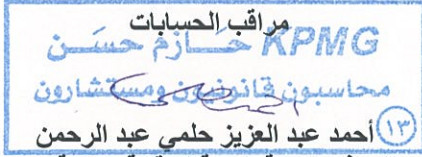 مراقب الحسابات
KPMG حازم حسن
محاسبون قانونيون ومستشارون
أحمد عبد العزيز حلمي عبد الرحمن
(١٣)